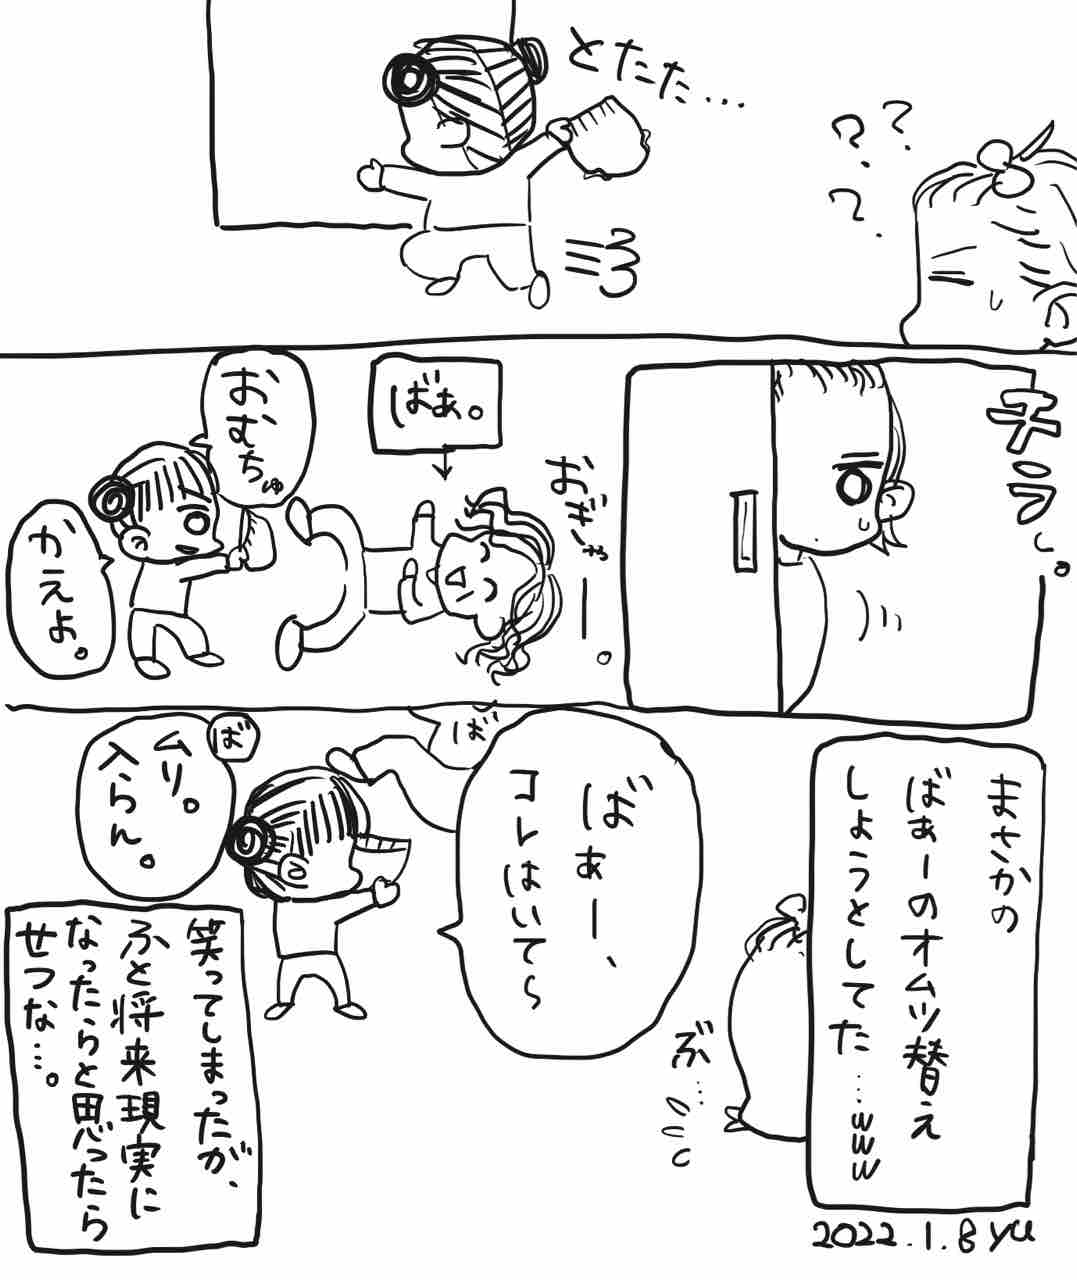 とたた…
???
チラッ。
おぎゃー。
ばぁ。
おむちゅ
かえよ。
まさかの
ばぁーのオムツ替え
しようとしてた…www
ぶ…
ばぁー、
コレはいて~
ば
ば
ムリ。
入らん。
笑ってしまったが、
ふと将来現実に
なったらと思ったら
せつな…。
2022.1.8 yu